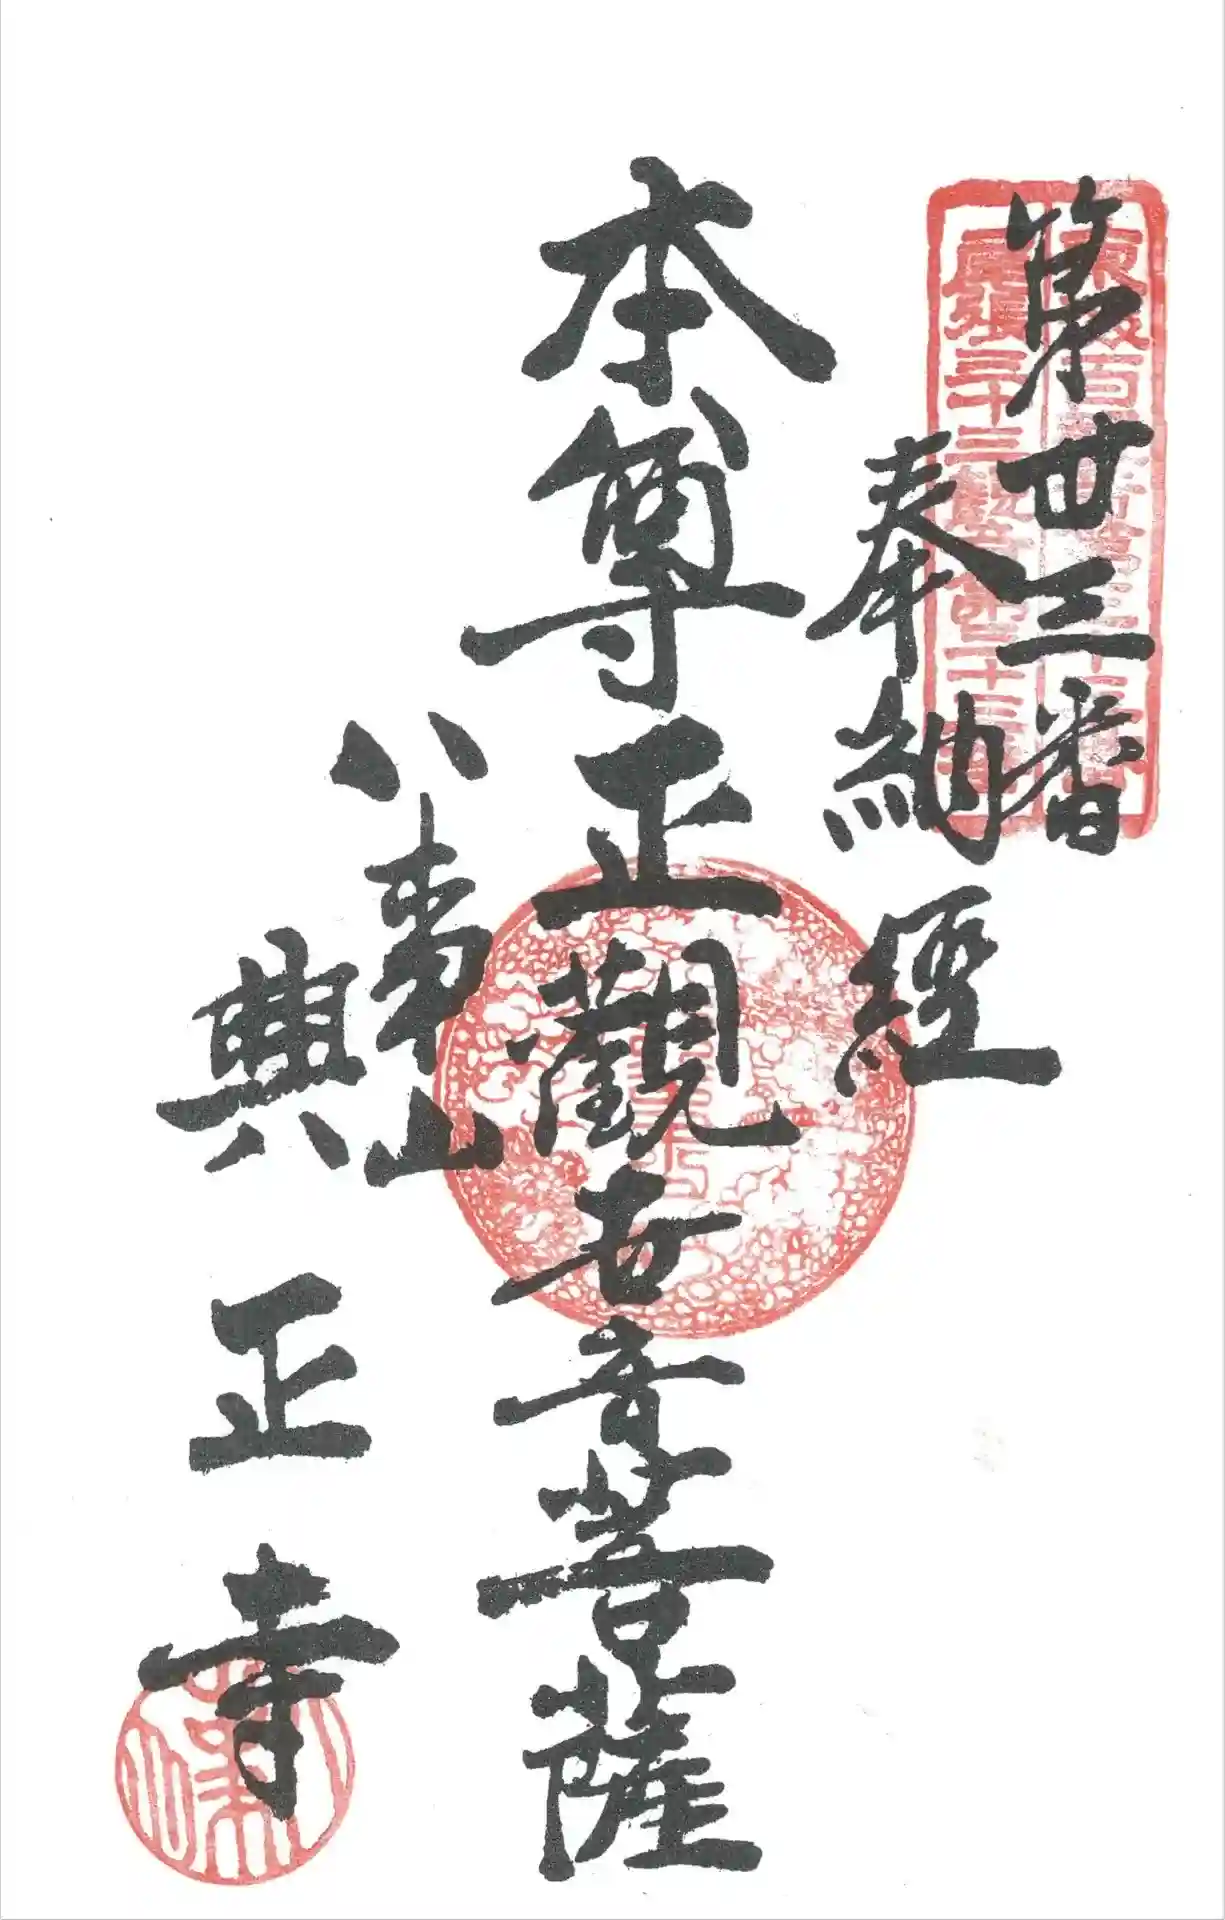 第丗三番
奉納經
本尊正觀世音菩薩
八事山
興正寺